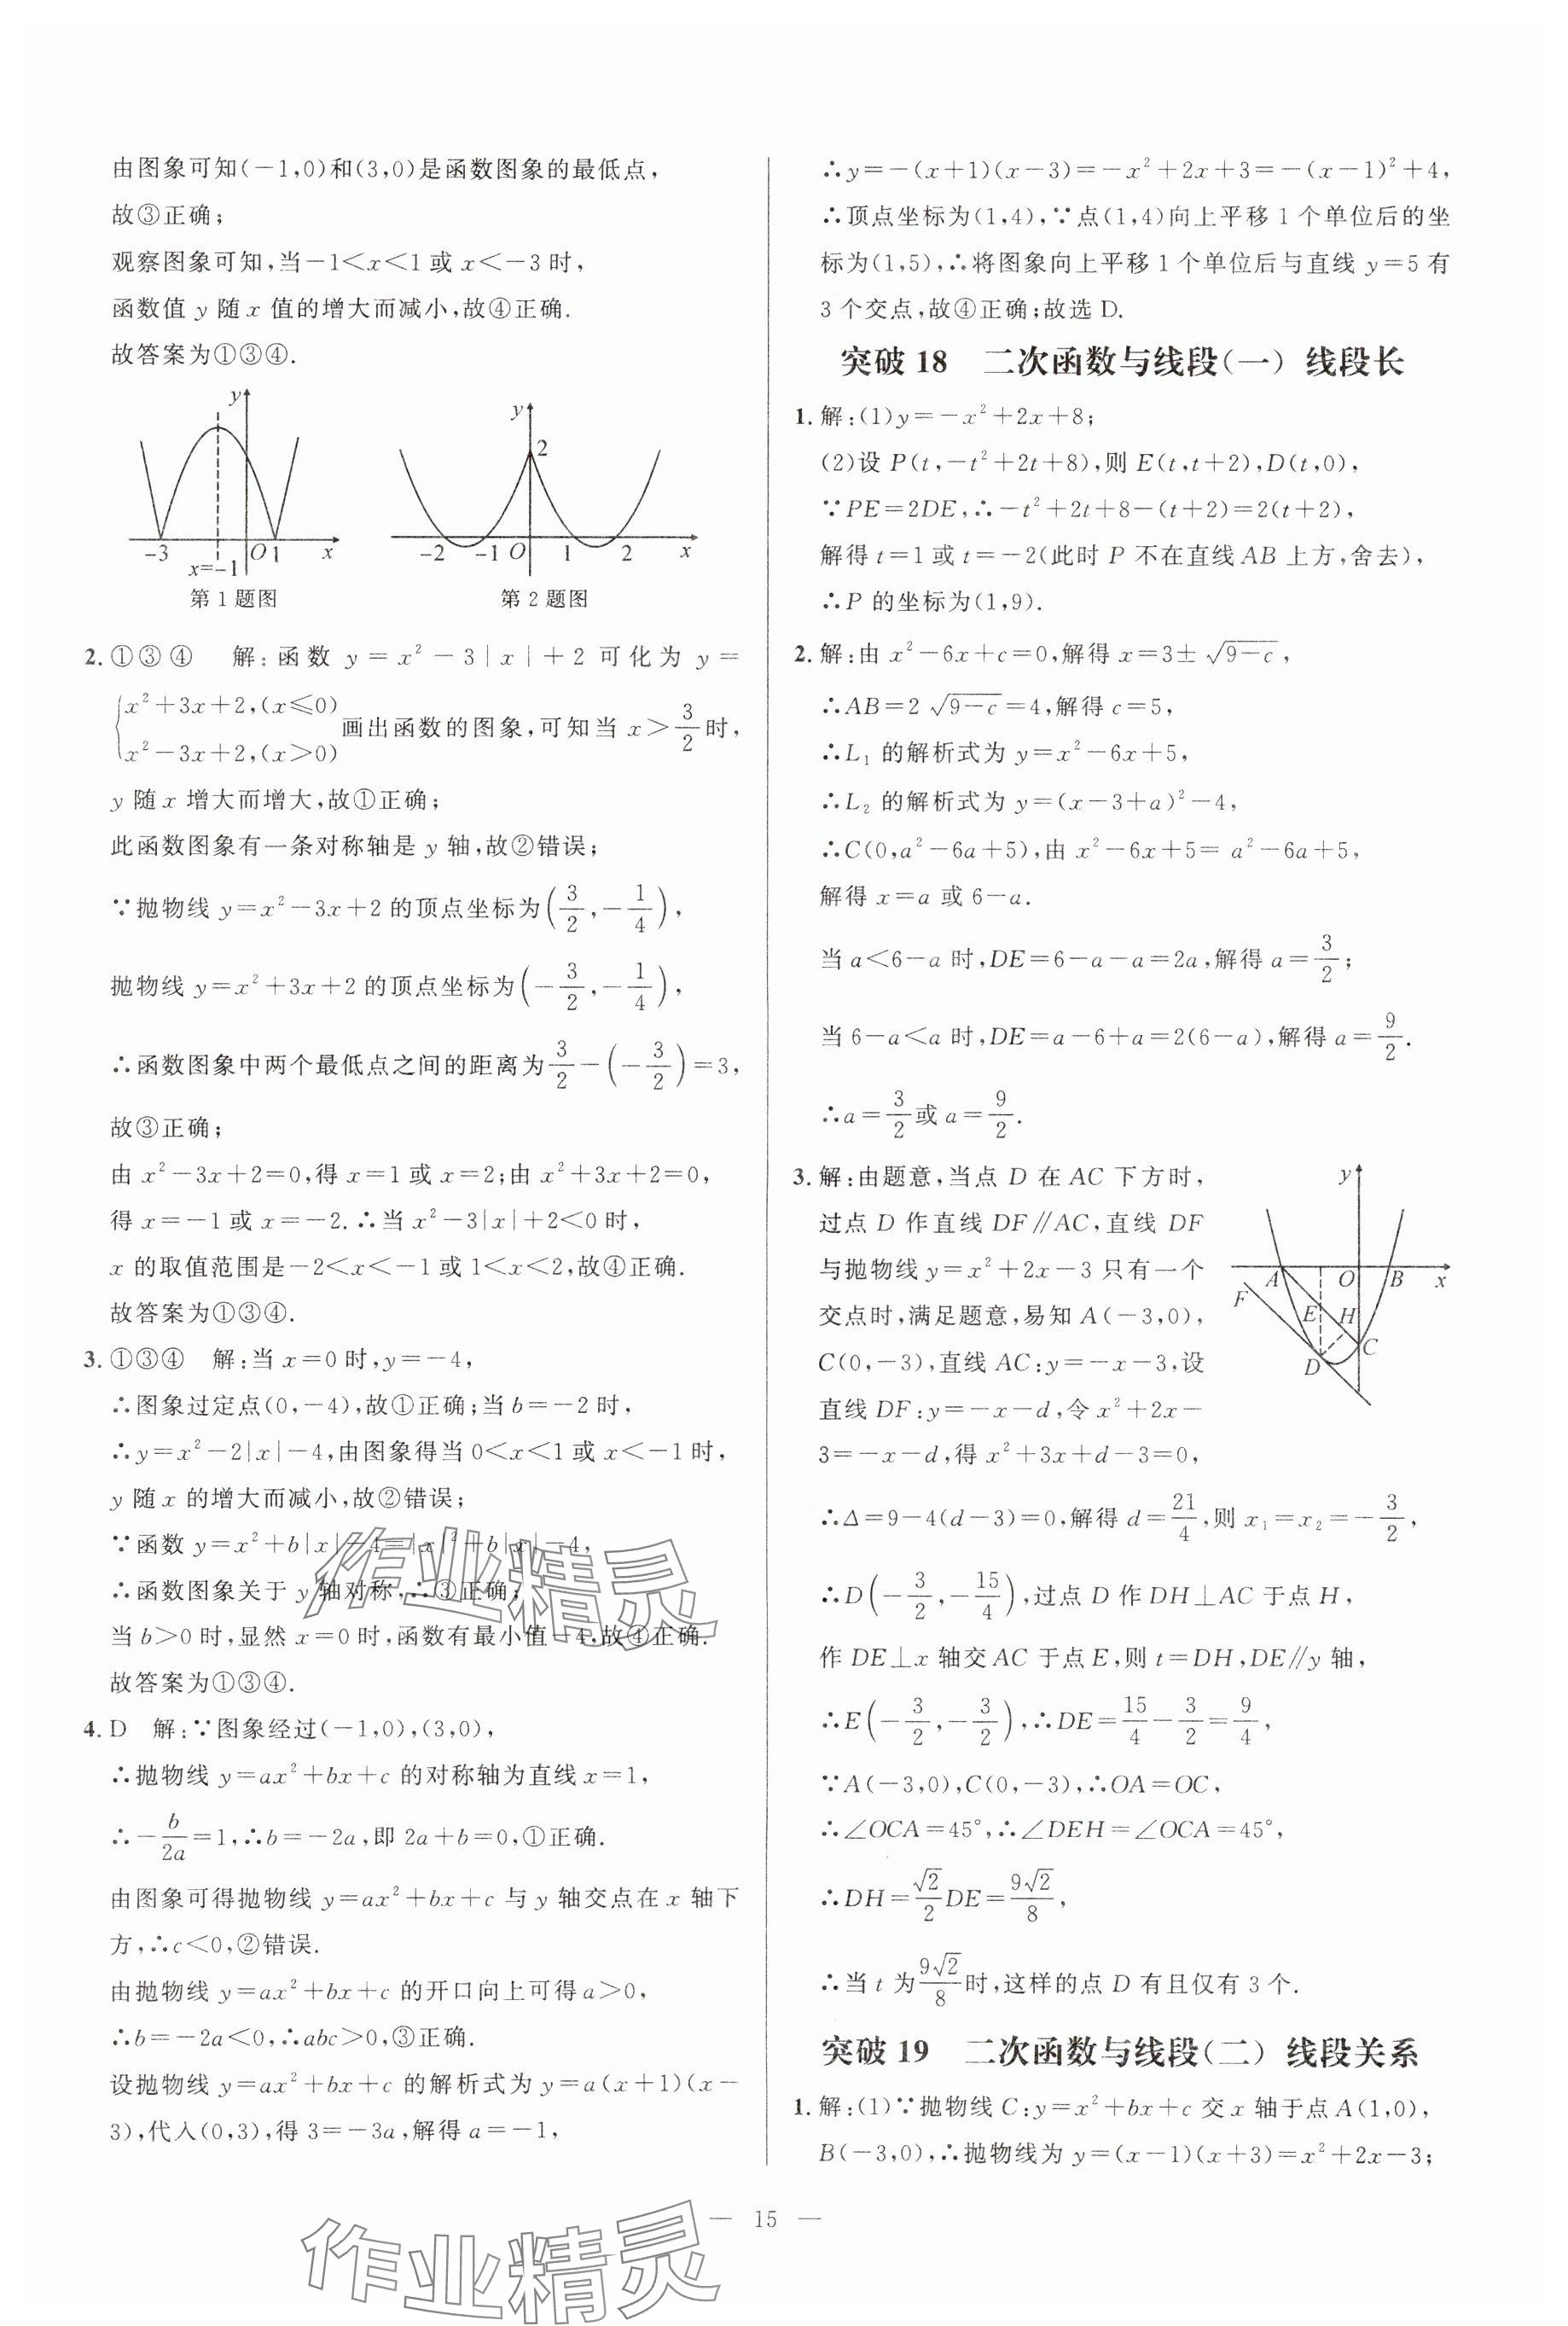 由图象可知(-1,0)和(3,0)是函数图象的最低点,
故③正确;
观察图象可知,当-1<x<1或x<-3时,
函数值y随x值的增大而减小,故④正确.
故答案为①③④.
y
-3 O 1 x
x=-1
第1题图
y
2
-2 -1 O 1 2 x
第2题图
2. ①③④ 解:函数 y=x²-3|x|+2 可化为 y=
{x²+3x+2,(x≤0)
x²-3x+2,(x>0) 画出函数的图象,可知当x>3/2时,
y随x增大而增大,故①正确;
此函数图象有一条对称轴是y轴,故②错误;
∵抛物线y=x²-3x+2的顶点坐标为(3/2,-1/4),
抛物线y=x²+3x+2的顶点坐标为(-3/2,-1/4),
∴函数图象中两个最低点之间的距离为3/2-(-3/2)=3,
故③正确;
由x²-3x+2=0,得x=1或x=2;由x²+3x+2=0,
得x=-1或x=-2.∴当x²-3|x|+2<0时,
x的取值范围是-2<x<-1或1<x<2,故④正确.
故答案为①③④.
3. ①③④ 解:当x=0时,y=-4,
∴图象过定点(0,-4),故①正确;当b=-2时,
∴y=x²-2|x|-4,由图象得当0<x<1或x<-1时,
y随x的增大而减小,故②错误;
∵函数y=x²+b|x|-4=|x|²+b|x|-4,
∴函数图象关于y轴对称,∴③正确;
当b>0时,显然x=0时,函数有最小值-4,故④正确.
故答案为①③④.
4. D 解:∵图象经过(-1,0),(3,0),
∴抛物线y=ax²+bx+c的对称轴为直线x=1,
∴-b/2a=1,∴b=-2a,即2a+b=0,①正确.
由图象可得抛物线y=ax²+bx+c与y轴交点在x轴下
方,∴c<0,②错误.
由抛物线y=ax²+bx+c的开口向上可得a>0,
∴b=-2a<0,∴abc>0,③正确.
设抛物线y=ax²+bx+c的解析式为y=a(x+1)(x-
3),代入(0,3),得3=-3a,解得a=-1,
∴y=-(x+1)(x-3)=-x²+2x+3=-(x-1)²+4,
∴顶点坐标为(1,4),∵点(1,4)向上平移1个单位后的坐
标为(1,5),∴将图象向上平移1个单位后与直线y=5有
3个交点,故④正确;故选D.
突破18 二次函数与线段(一) 线段长
1. 解:(1)y=-x²+2x+8;
(2)设P(t,-t²+2t+8),则E(t,t+2),D(t,0),
∵PE=2DE,∴-t²+2t+8-(t+2)=2(t+2),
解得t=1或t=-2(此时P不在直线AB上方,舍去),
∴P的坐标为(1,9).
2. 解:由x²-6x+c=0,解得x=3±√(9-c),
∴AB=2√(9-c)=4,解得c=5,
∴L₁的解析式为y=x²-6x+5,
∴L₂的解析式为y=(x-3+a)²-4,
∴C(0,a²-6a+5),由x²-6x+5=a²-6a+5,
解得x=a或6-a.
当a<6-a时,DE=6-a-a=2a,解得a=3/2;
当6-a<a时,DE=a-6+a=2(6-a),解得a=9/2.
∴a=3/2或a=9/2.
3. 解:由题意,当点D在AC下方时,
过点D作直线DF∥AC,直线DF
与抛物线y=x²+2x-3只有一个
交点时,满足题意,易知A(-3,0),
C(0,-3),直线AC:y=-x-3,设
直线DF:y=-x-d,令x²+2x-
3=-x-d,得x²+3x+d-3=0,
y
A O B x
F E H
C
D
∴Δ=9-4(d-3)=0,解得d=21/4,则x₁=x₂=-3/2,
∴D(-3/2,-15/4),过点D作DH⊥AC于点H,
作DE⊥x轴交AC于点E,则t=DH,DE∥y轴,
∴E(-3/2,-3/2),∴DE=15/4-3/2=9/4,
∵A(-3,0),C(0,-3),∴OA=OC,
∴∠OCA=45°,∴∠DEH=∠OCA=45°,
∴DH=√2/2DE=9√2/8,
∴当t为9√2/8时,这样的点D有且仅有3个.
突破19 二次函数与线段(二) 线段关系
1. 解:(1)∵抛物线C:y=x²+bx+c交x轴于点A(1,0),
B(-3,0),∴抛物线为y=(x-1)(x+3)=x²+2x-3;
— 15 —
作业精灵
作业精灵